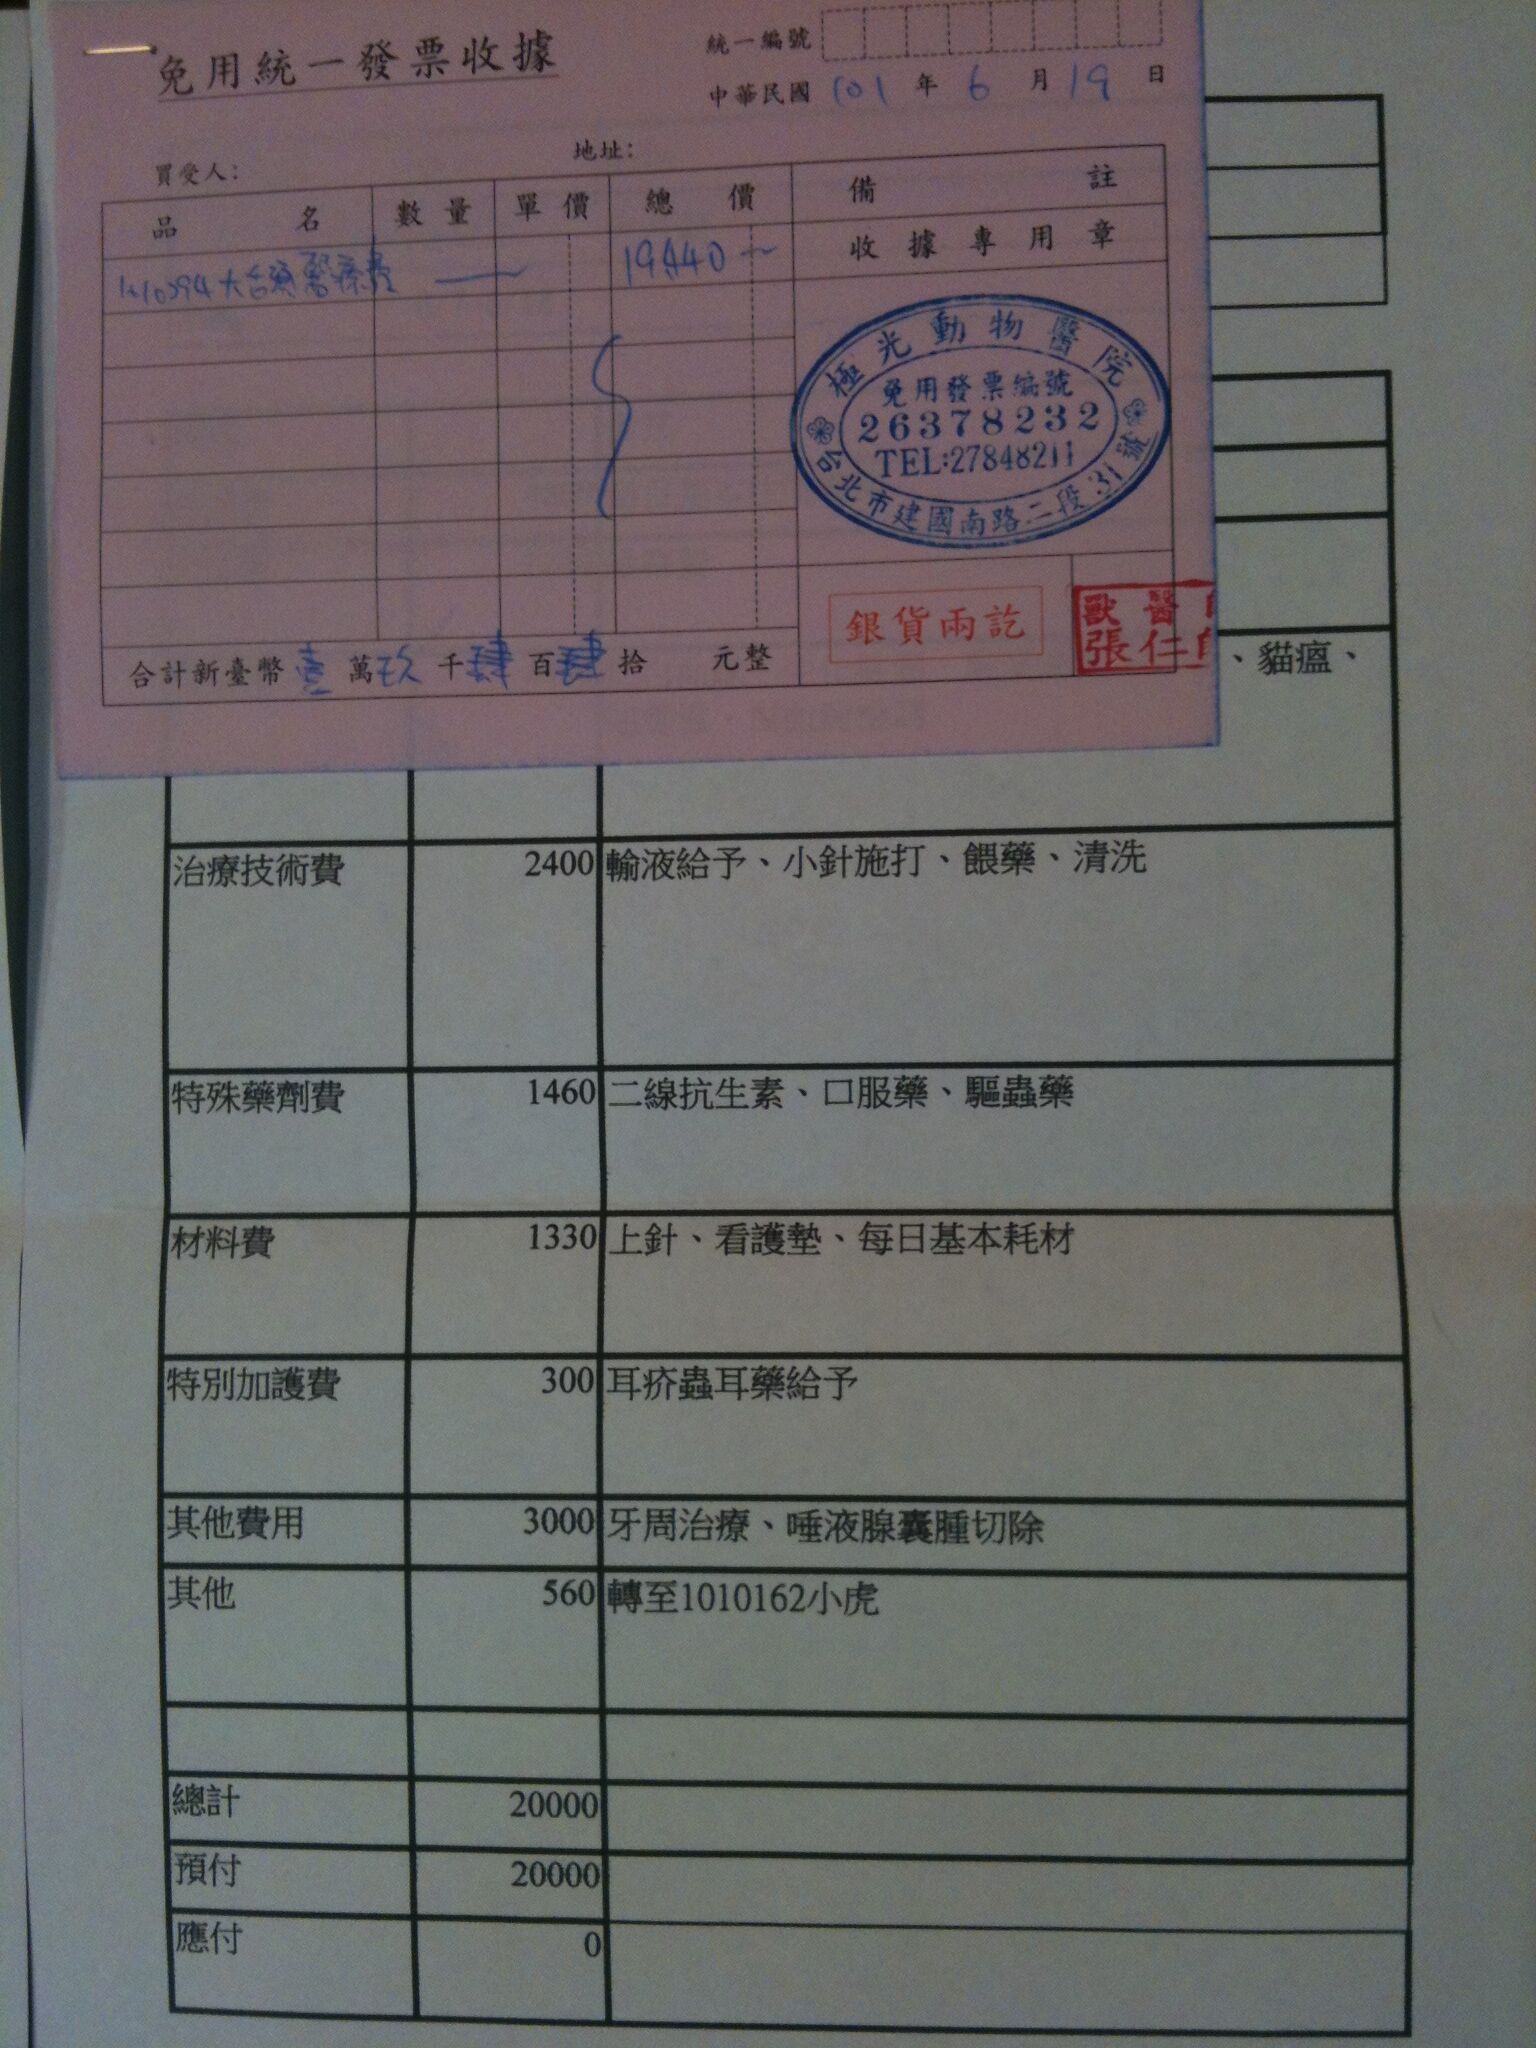 免用統一發票收據
統一編號
中華民國 101 年 6 月 19 日
買受人： 地址：
品名 數量 單價 總價 備註
收據專用章
大 醫療費 19440
極光動物醫院
免用發票編號
26378232
TEL:27848211
台北市建國南路二段31號
銀貨兩訖
獸醫
張仁
合計新臺幣 壹 萬 玖 千 肆 百 肆 拾 元整
、貓瘟、
治療技術費 2400 輸液給予、小針施打、餵藥、清洗
特殊藥劑費 1460 二線抗生素、口服藥、驅蟲藥
材料費 1330 上針、看護墊、每日基本耗材
特別加護費 300 耳疥蟲耳藥給予
其他費用 3000 牙周治療、唾液腺囊腫切除
其他 560 轉至1010162小虎
總計 20000
預付 20000
應付 0